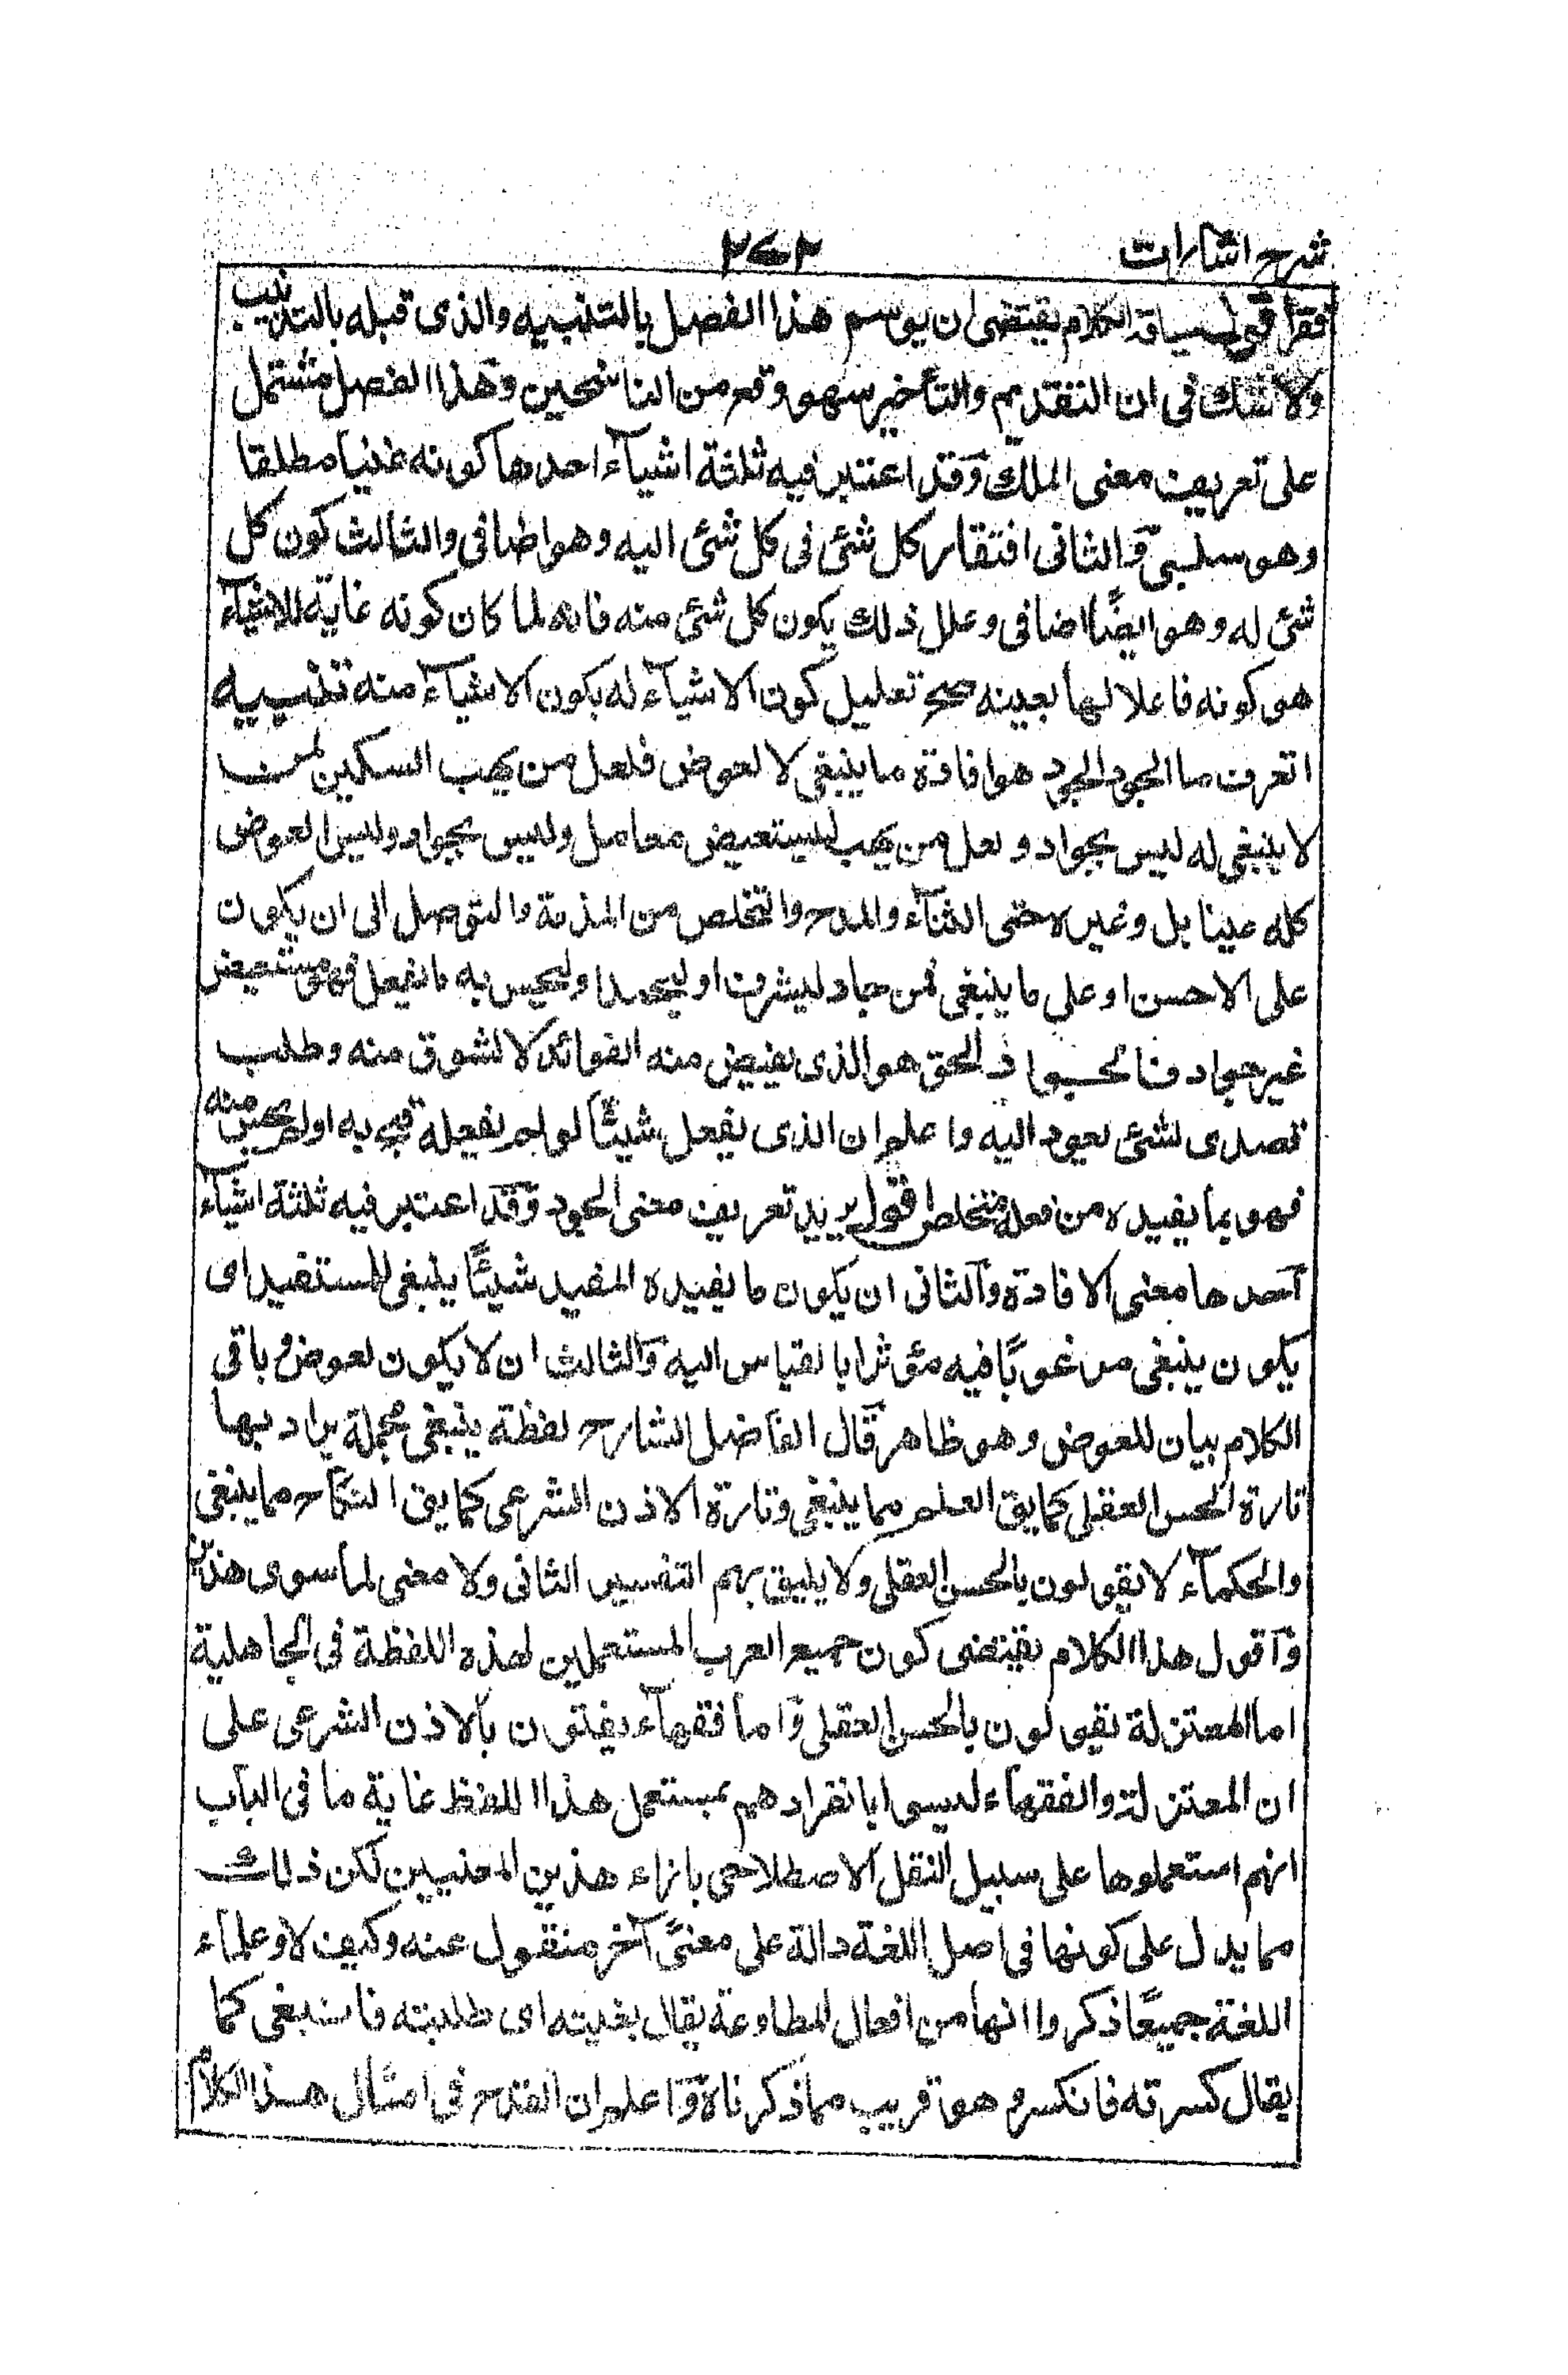 شرح اشارات
٢٧٢
فقر اقول سياقة الكلام يقتضى ان يوسم هذا الفصل بالتنبيه والذى قبله بالتذنيب
ولا شك فى ان التقديم والتأخير سهو وقع من الناسخين وهذا الفصل مشتمل
على تعريف معنى الملك وقد اعتبر فيه ثلثة اشيآء احدها كونه غنيا مطلقا
وهو سلبى والثانى افتقار كل شئ فى كل شئ اليه وهو اضافى والثالث كون كل
شئ له وهو ايضًا اضافى وعلل ذلك بكون كل شئ منه فانه لما كان كونه غاية للاشيآء
هو كونه فاعلا لها بعينه صح تعليل كون الاشيآء له بكون الاشيآء منه تنبيه
اتعرف ما الجود الجود هو افادة ما ينبغى لا لعوض فلعل من يهب السكين لمن
لا ينبغى له ليس بجواد ولعل من يهب ليستعيض معامل وليس بجواد وليس العوض
كله عينا بل وغيره حتى الثنآء والمدح والتخلص من المذمة والتوصل الى ان يكون
على الاحسن او على ما ينبغى فمن جاد ليشرف او ليحمد او ليحسن به ما يفعل فهو مستعيض
غير جواد فالجواد الحق هو الذى يفيض منه الفوائد لا لشوق منه وطلب
قصدى لشئ يعود اليه واعلم ان الذى يفعل شيئًا لو لم يفعله قبح به او لم يحسن منه
فهو بما يفيده من فعله متخلص اقول يريد تعريف معنى الجود وقد اعتبر فيه ثلثة اشيآء
احدها معنى الافادة والثانى ان يكون ما يفيده المفيد شيئًا ينبغى للمستفيد اى
يكون ينبغى مرغوبًا فيه مؤثرا بالقياس اليه والثالث ان لا يكون لعوض وباقى
الكلام بيان للعوض وهو ظاهر قال الفاضل الشارح لفظة ينبغى مجملة يراد بها
تارة الحسن العقلى كما يق العلم مما ينبغى وتارة الاذن الشرعى كما يق النكاح مما ينبغى
والحكمآء لا يقولون بالحسن العقلى ولا يليق بهم التفسير الثانى ولا معنى لما سوى هذين
واقول هذا الكلام يقتضى كون جميع العرب المستعملين لهذه اللفظة فى الجاهلية
اما المعتزلة يقولون بالحسن العقلى واما فقهآء يفتون بالاذن الشرعى على
ان المعتزلة والفقهآء ليسوا بانفرادهم بمستعمل هذا اللفظ غاية ما فى الباب
انهم استعملوها على سبيل النقل الاصطلاحى بازاء هذين المعنيين لكن ذلك
مما يدل على كونها فى اصل اللغة دالة على معنىً آخر منقول عنه وكيف لا وعلمآء
اللغة جميعًا ذكروا انها من افعال المطاوعة يقال بغيته اى طلبته فانبغى كما
يقال كسرته فانكسر وهو قريب مما ذكرناه واعلم ان القدح فى امثال هذا الكلام